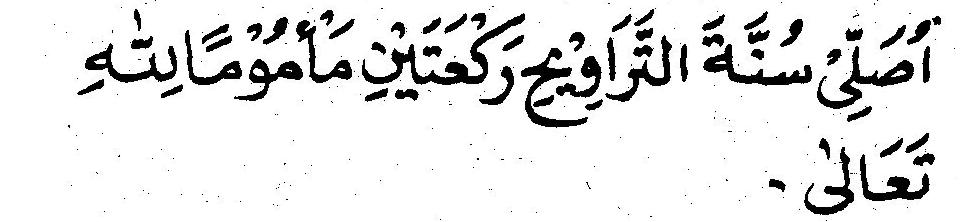 اُصَلِّيْ سُنَّةَ التَّرَاوِيْحِ رَكْعَتَيْنِ مَأْمُوْمًا لِلّٰهِ
تَعَالٰى .